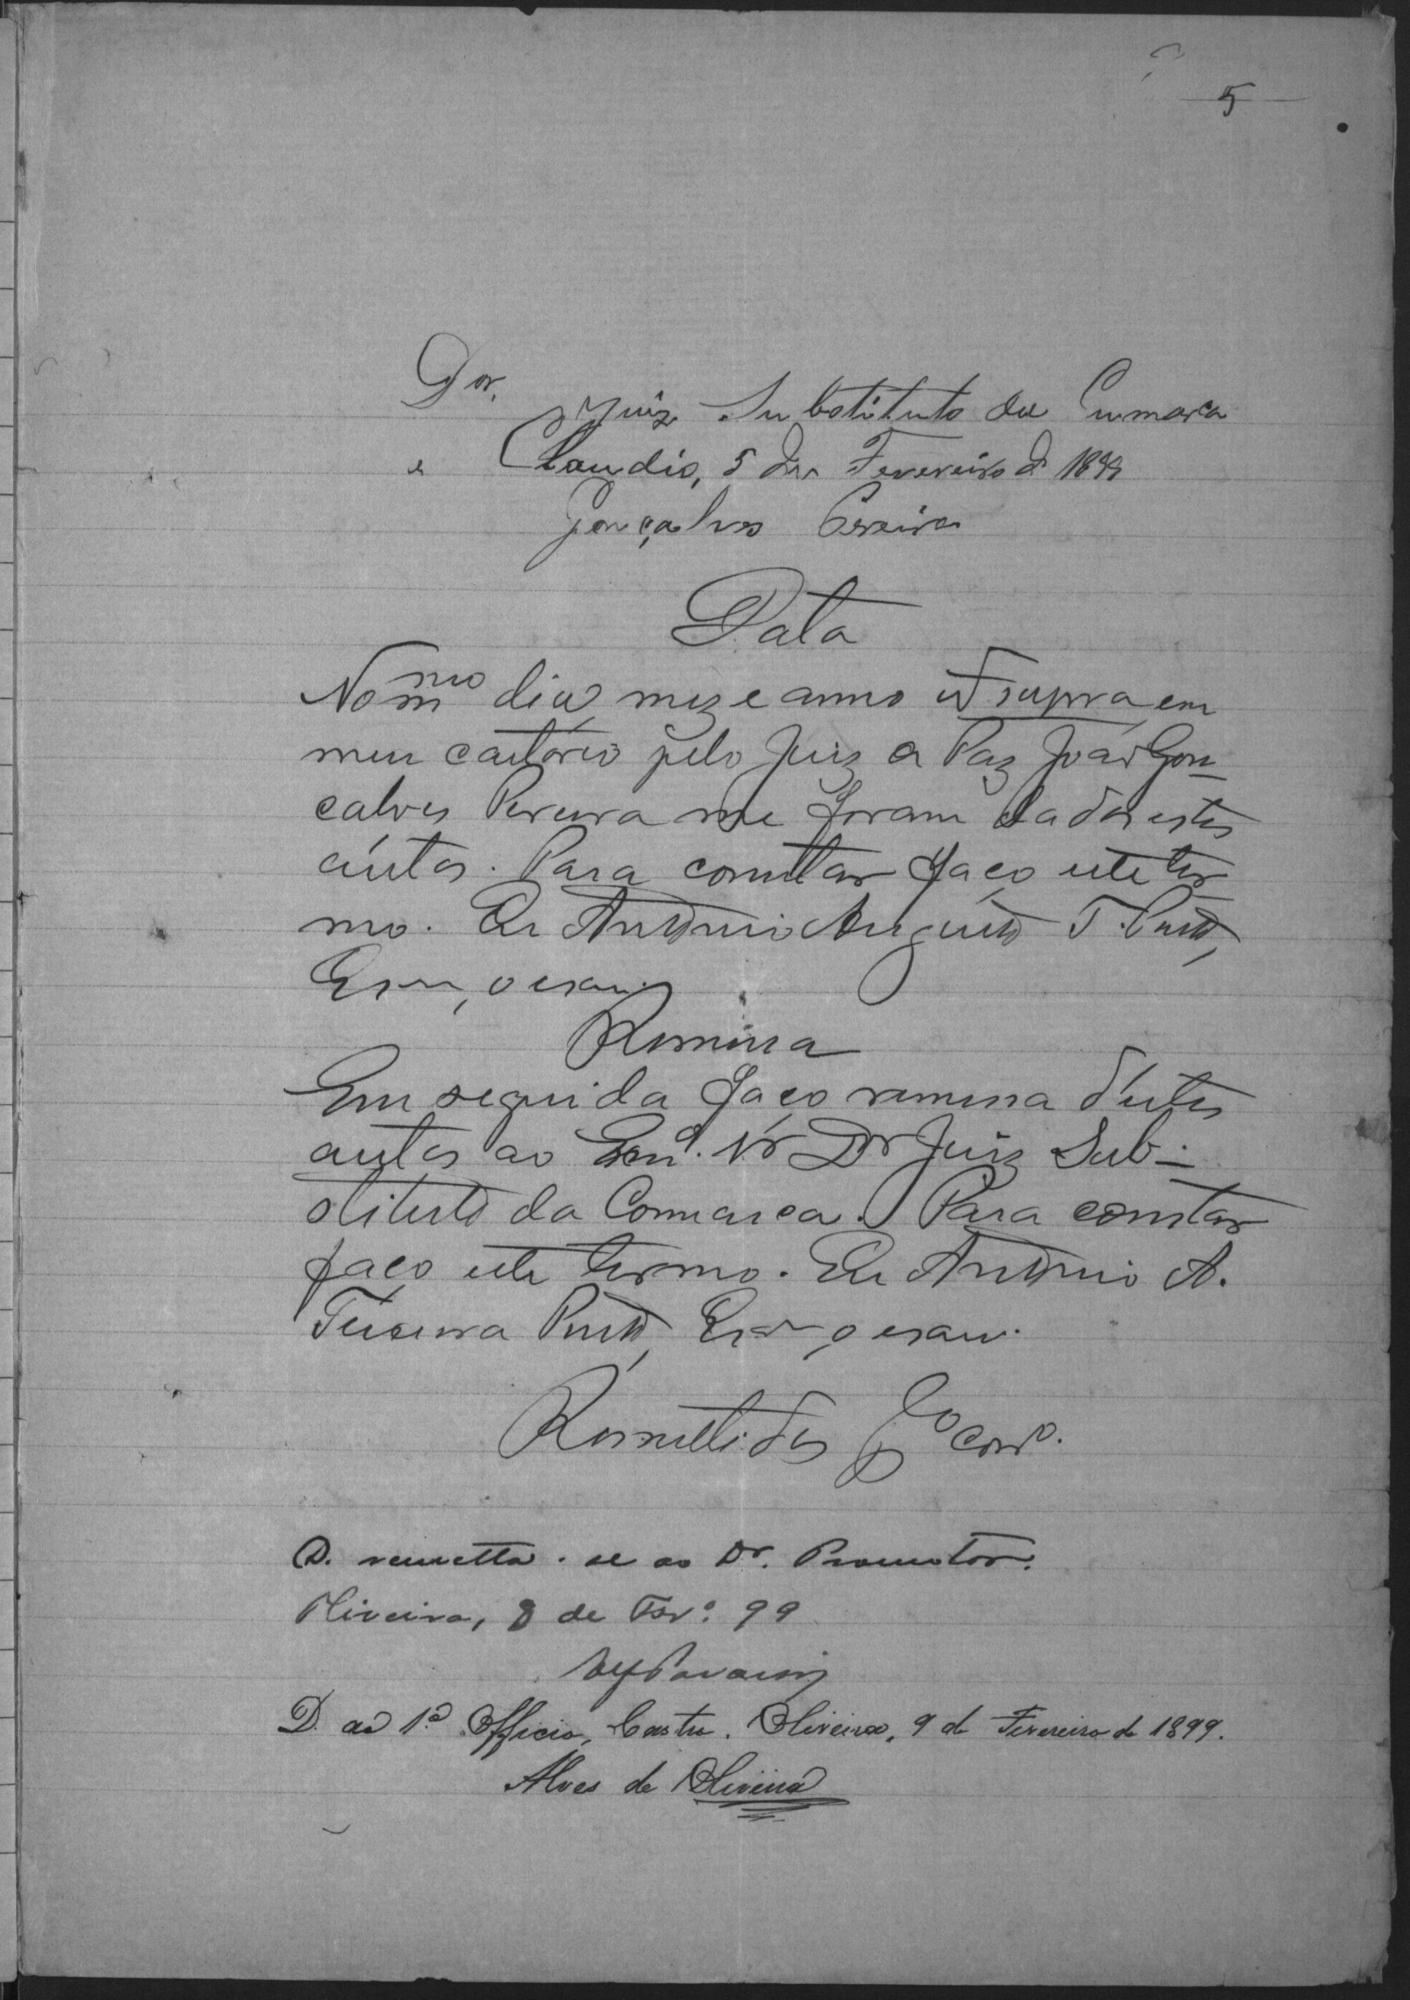 5
Dor.
Juiz Substituto da Cumarca
Claudio, 5 de Fevereiro d 1899
Gonçalves Pereira
Data
No mmo dia mez e anno ut supra em
meu cartorio pelo Juiz de Paz João Gon-
calves Pereira me foram dados estes
autos. Para constar faço este ter
mo. Eu Antonio Augusto T. Pinto,
Esam, o escrev.
Remessa
Em seguida faço remessa d'estes
autos ao Exmo. Sr Dr Juiz Sub-
stituto da Comarca. Para constar
faço este termo. Eu Antonio A.
Teixeira Pinto, Esam, o escrev.
Remettidos
D. remetta-se ao Dr. Promotor.
Oliveira, 8 de Fevo. 99
D. ao 1.º Officio, Castro. Oliveira, 9 de Fevereiro de 1899.
Alves de Oliveira